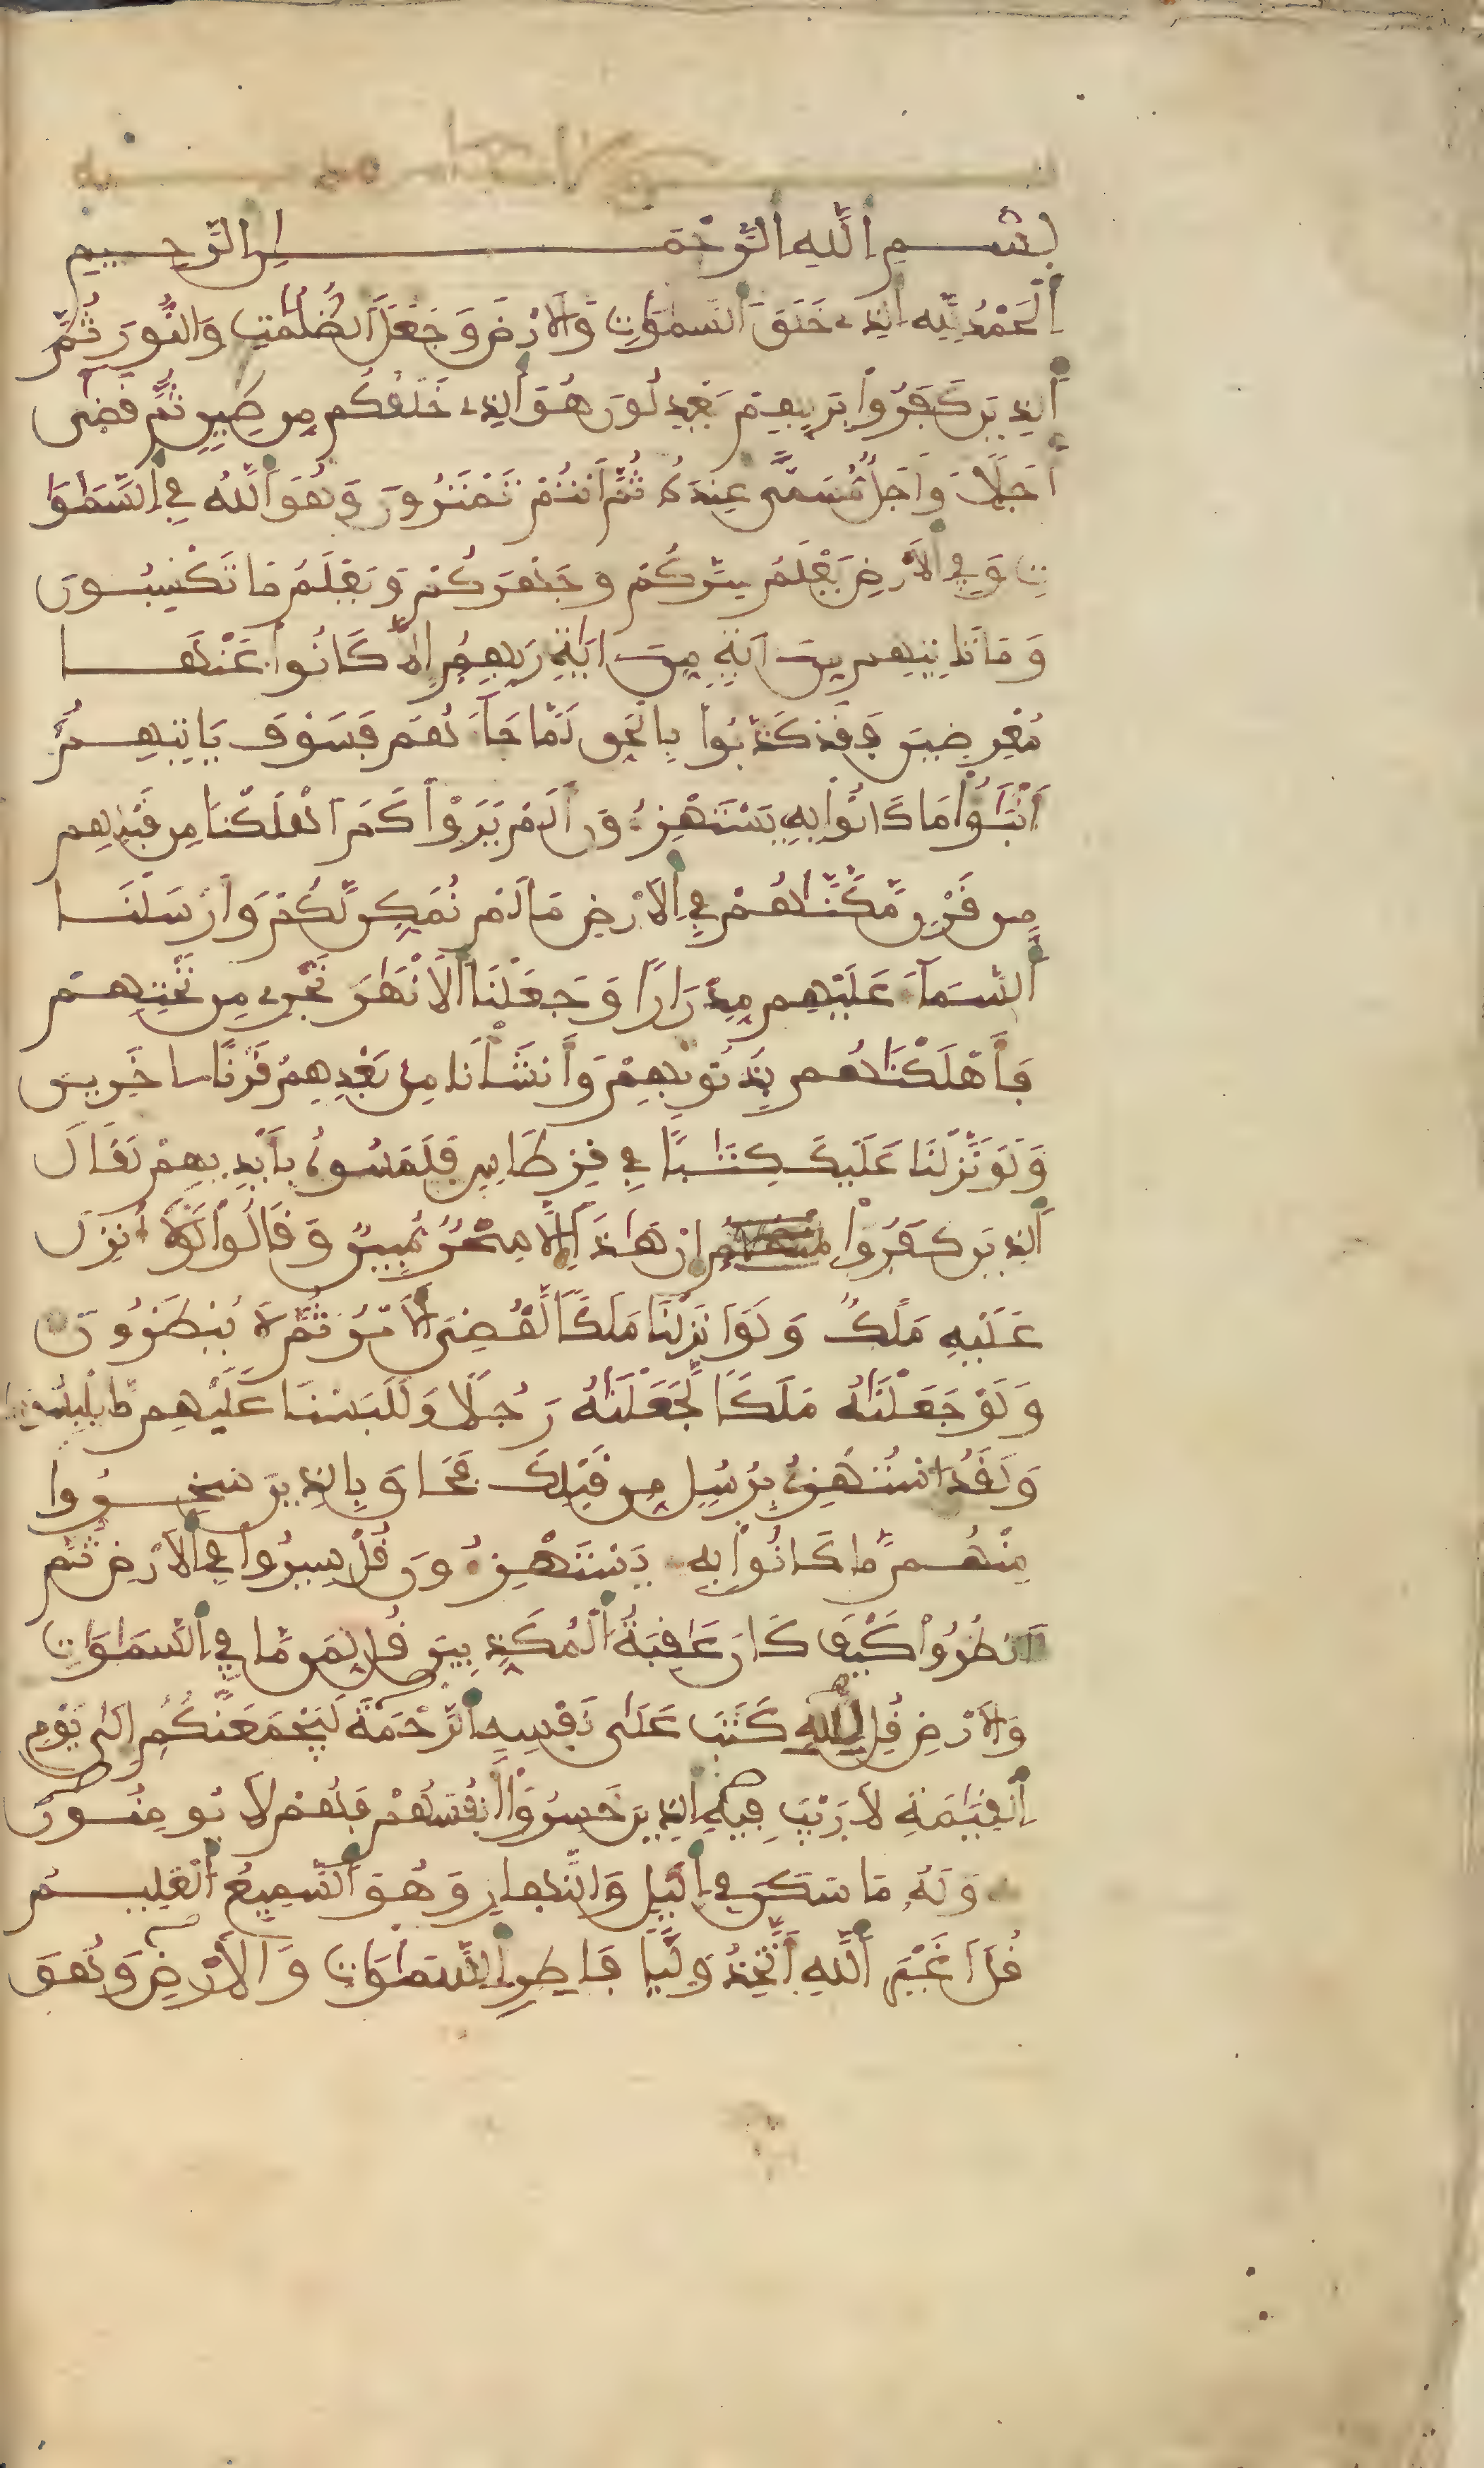 بِسْمِ اَ۬للَّهِ اِ۬لرَّحْمَٰنِ اِ۬لرَّحِيمِ
اَ۬لْحَمْدُ لِلهِ اِ۬لذِے خَلَقَ اَ۬لسَّمَٰوَٰتِ وَالَارْضَ وَجَعَلَ اَ۬لظُّلُمَٰتِ وَالنُّورَ ثُمَّ
اَ۬لذِينَ كَفَرُواْ بِرَبِّهِمْ يَعْدِلُونَ هُوَ اَ۬لذِے خَلَقَكُم مِّن طِينٍ ثُمَّ قَض۪ىٰٓ
أَجَلًا وَأَجَلٌ مُّسَمًّى عِندَهُۥ ثُمَّ أَنتُمْ تَمْتَرُونَ وَهُوَ اَ۬للَّهُ فِے اِ۬لسَّمَٰوَٰ
تِ وَفِے اِ۬لَارْضِ يَعْلَمُ سِرَّكُمْ وَجَهْرَكُمْ وَيَعْلَمُ مَا تَكْسِبُونَ
وَمَا تَاتِيهِم مِّنَ اٰيَةٍ مِّنَ اٰيَٰتِ رَبِّهِمُۥٓ إِلَّا كَانُواْ عَنْهَا
مُعْرِضِينَ فَقَدْ كَذَّبُواْ بِالْحَقِّ لَمَّا جَآءَهُمْ فَسَوْفَ يَاتِيهِمُۥٓ
أَنۢبَٰٓؤُاْ مَا كَانُواْ بِهِۦ يَسْتَهْزِءُونَ أَلَمْ يَرَوْاْ كَمَ اَهْلَكْنَا مِن قَبْلِهِم
مِّن قَرْنٍ مَّكَّنَّٰهُمْ فِے اِ۬لَارْضِ مَا لَمْ نُمَكِّن لَّكُمْ وَأَرْسَلْنَا
اَ۬لسَّمَآءَ عَلَيْهِم مِّدْرَارًا وَجَعَلْنَا اَ۬لَانْهَٰرَ تَجْرِے مِن تَحْتِهِمْ
فَأَهْلَكْنَٰهُم بِذُنُوبِهِمْ وَأَنشَأْنَا مِنۢ بَعْدِهِمْ قَرْنًا اٰخَرِينَ
وَلَوْ نَزَّلْنَا عَلَيْكَ كِتَٰبًا فِے قِرْطَاسٍ فَلَمَسُوهُ بِأَيْدِيهِمْ لَقَالَ
اَ۬لذِينَ كَفَرُواْ إِنْ هَٰذَآ إِلَّا سِحْرٌ مُّبِينٌ وَقَالُواْ لَوْلَآ أُنزِلَ
عَلَيْهِ مَلَكٌ وَلَوَ اَنزَلْنَا مَلَكًا لَّقُضِيَ اَ۬لَامْرُ ثُمَّ لَا يُنظَرُونَ
وَلَوْ جَعَلْنَٰهُ مَلَكًا لَّجَعَلْنَٰهُ رَجُلًا وَلَلَبَسْنَا عَلَيْهِم مَّا يَلْبِسُونَ
وَلَقَدُ اُ۟سْتُهْزِئَ بِرُسُلٍ مِّن قَبْلِكَ فَحَاقَ بِالذِينَ سَخِرُواْ
مِنْهُم مَّا كَانُواْ بِهِۦ يَسْتَهْزِءُونَ قُلْ سِيرُواْ فِے اِ۬لَارْضِ ثُمَّ
اَ۟نظُرُواْ كَيْفَ كَانَ عَٰقِبَةُ اُ۬لْمُكَذِّبِينَ قُل لِّمَن مَّا فِے اِ۬لسَّمَٰوَٰتِ
وَالَارْضِ قُل لِّلهِ كَتَبَ عَلَىٰ نَفْسِهِ اِ۬لرَّحْمَةَ لَيَجْمَعَنَّكُمُۥٓ إِلَىٰ يَوْمِ
اِ۬لْقِيَٰمَةِ لَا رَيْبَ فِيهِ اِ۬لذِينَ خَسِرُوٓاْ أَنفُسَهُمْ فَهُمْ لَا يُومِنُونَ
وَلَهُۥ مَا سَكَنَ فِے اِ۬ليْلِ وَالنَّهَارِ وَهُوَ اَ۬لسَّمِيعُ اُ۬لْعَلِيمُ
قُلَ اَغَيْرَ اَ۬للَّهِ أَتَّخِذُ وَلِيًّا فَاطِرِ اِ۬لسَّمَٰوَٰتِ وَالَارْضِ وَهُوَ